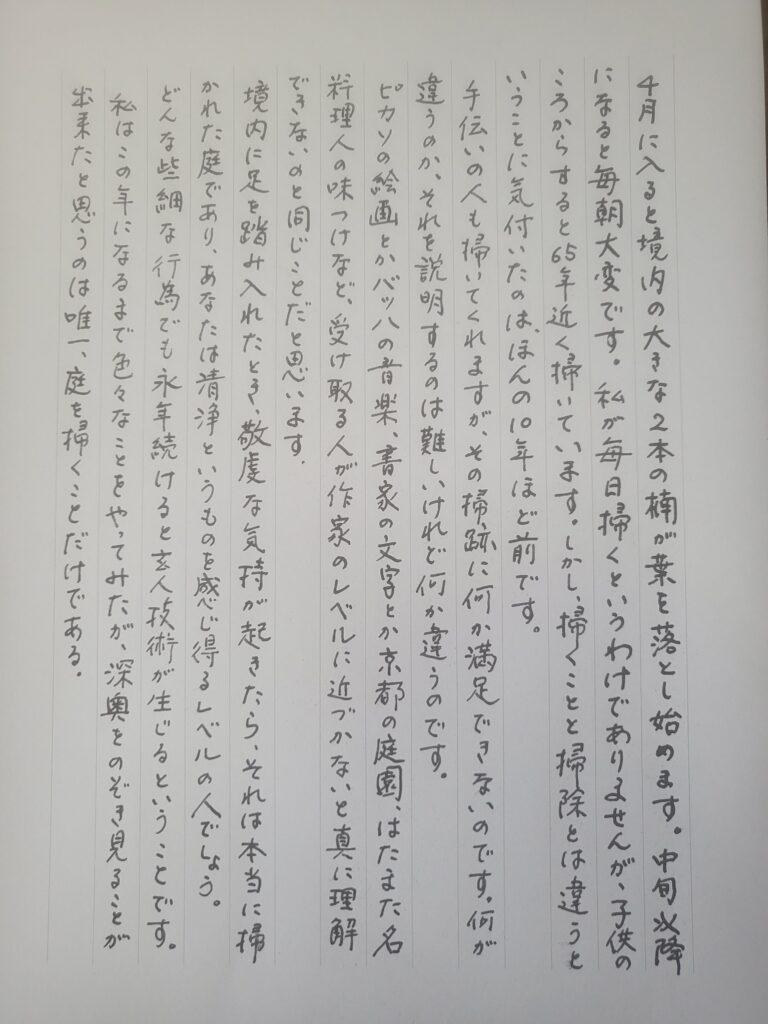 4月に入ると境内の大きな2本の楠が葉を落とし始めます。中旬以降
になると毎朝大変です。私が毎日掃くというわけでありませんが、子供の
ころからすると65年近く掃いています。しかし、掃くことと掃除とは違うと
いうことに気付いたのは、ほんの10年ほど前です。
手伝いの人も掃いてくれますが、その掃跡に何か満足できないのです。何が
違うのか、それを説明するのは難しいけれど何か違うのです。
ピカソの絵画とかバッハの音楽、書家の文字とか京都の庭園、はたまた名
料理人の味つけなど、受け取る人が作家のレベルに近づかないと真に理解
できないのと同じことだと思います.
境内に足を踏み入れたとき、敬虔な気持が起きたら、それは本当に掃
かれた庭であり、あなたは清浄というものを感じ得るレベルの人でしょう。
どんな些細な行為でも永年続けると玄人技術が生じるということです。
私はこの年になるまで色々なことをやってみたが、深奥をのぞき見ることが
出来たと思うのは唯一、庭を掃くことだけである.